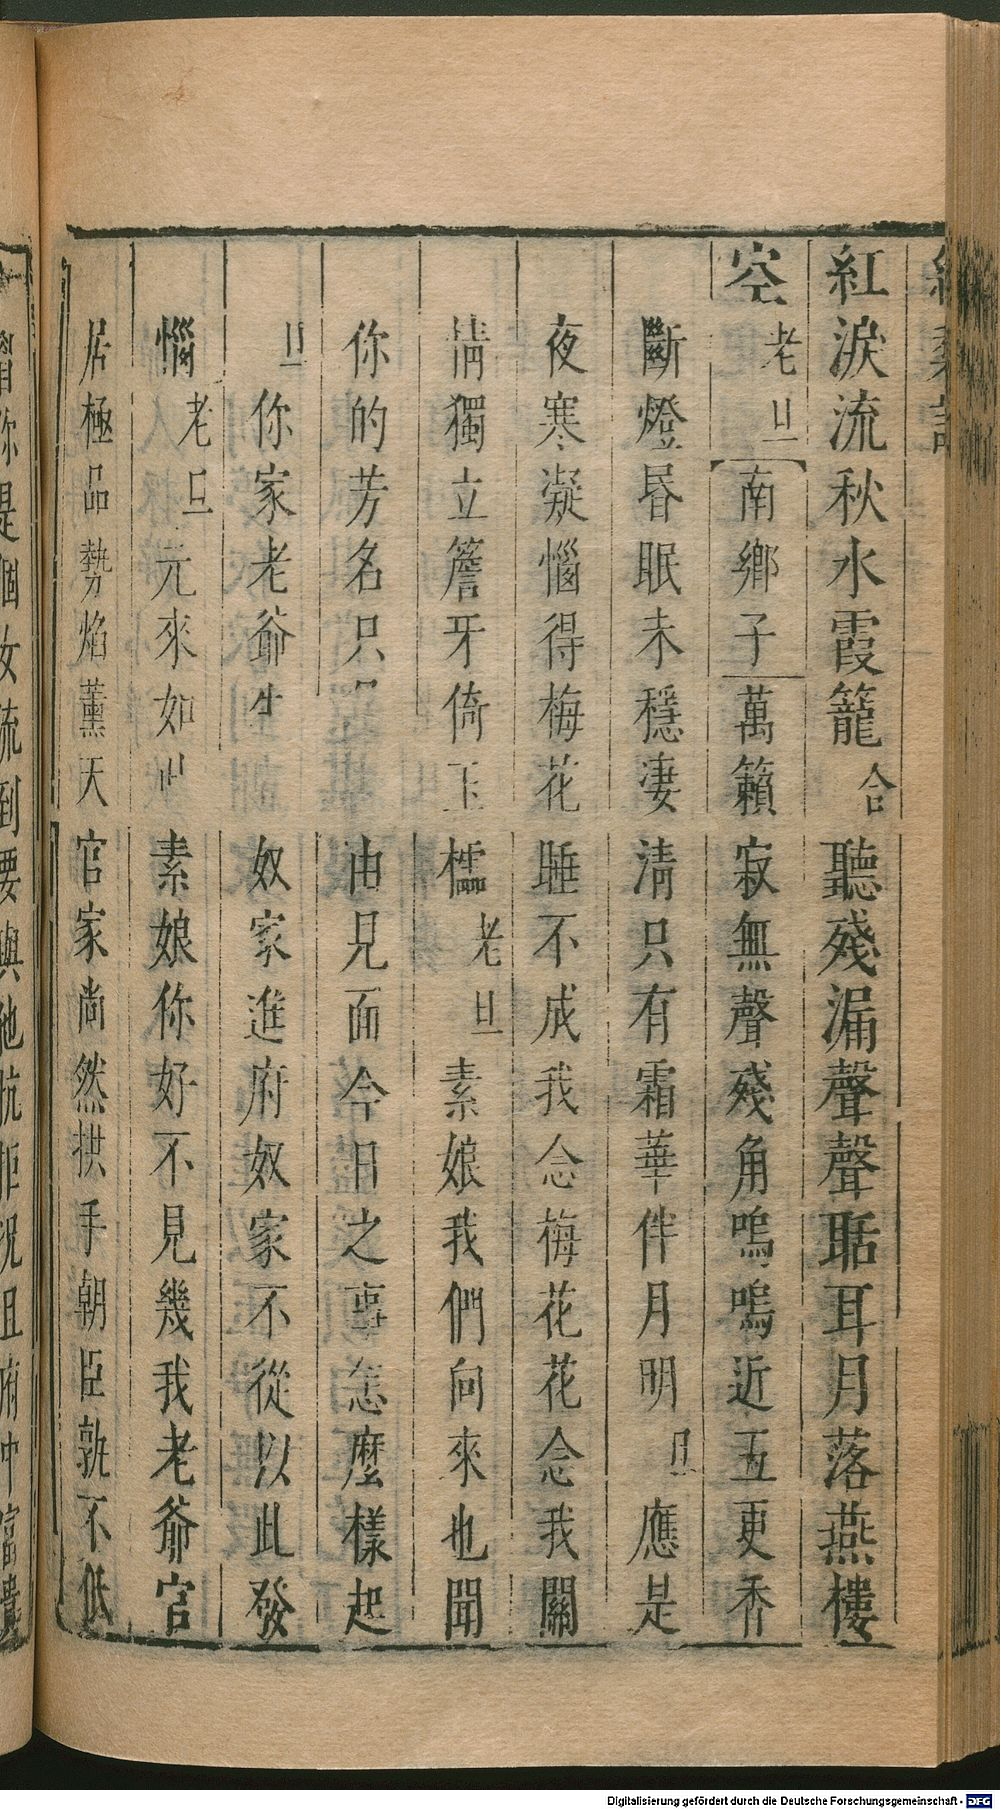 紅淚流秋水霞籠合聽殘漏聲聲聒耳月落燕樓
空老旦南鄉子萬籟寂無聲殘角嗚嗚近五更香
斷燈昏眠未穩淒清只有霜華伴月明旦應是
夜寒凝惱得梅花睡不成我念梅花花念我關
情獨立簷牙倚玉櫺老旦素娘我們向來也聞
你的芳名只由見面今日之事怎麼樣起
旦你家老爺生奴家進府奴家不從以此發
惱老旦元來如此素娘你好不見幾我老爺官
居極品勢焰薰天官家尚然拱手朝臣孰不低
你是個女流到要與他抗拒況且府中富貴
Digitalisierung gefördert durch die Deutsche Forschungsgemeinschaft - DFG